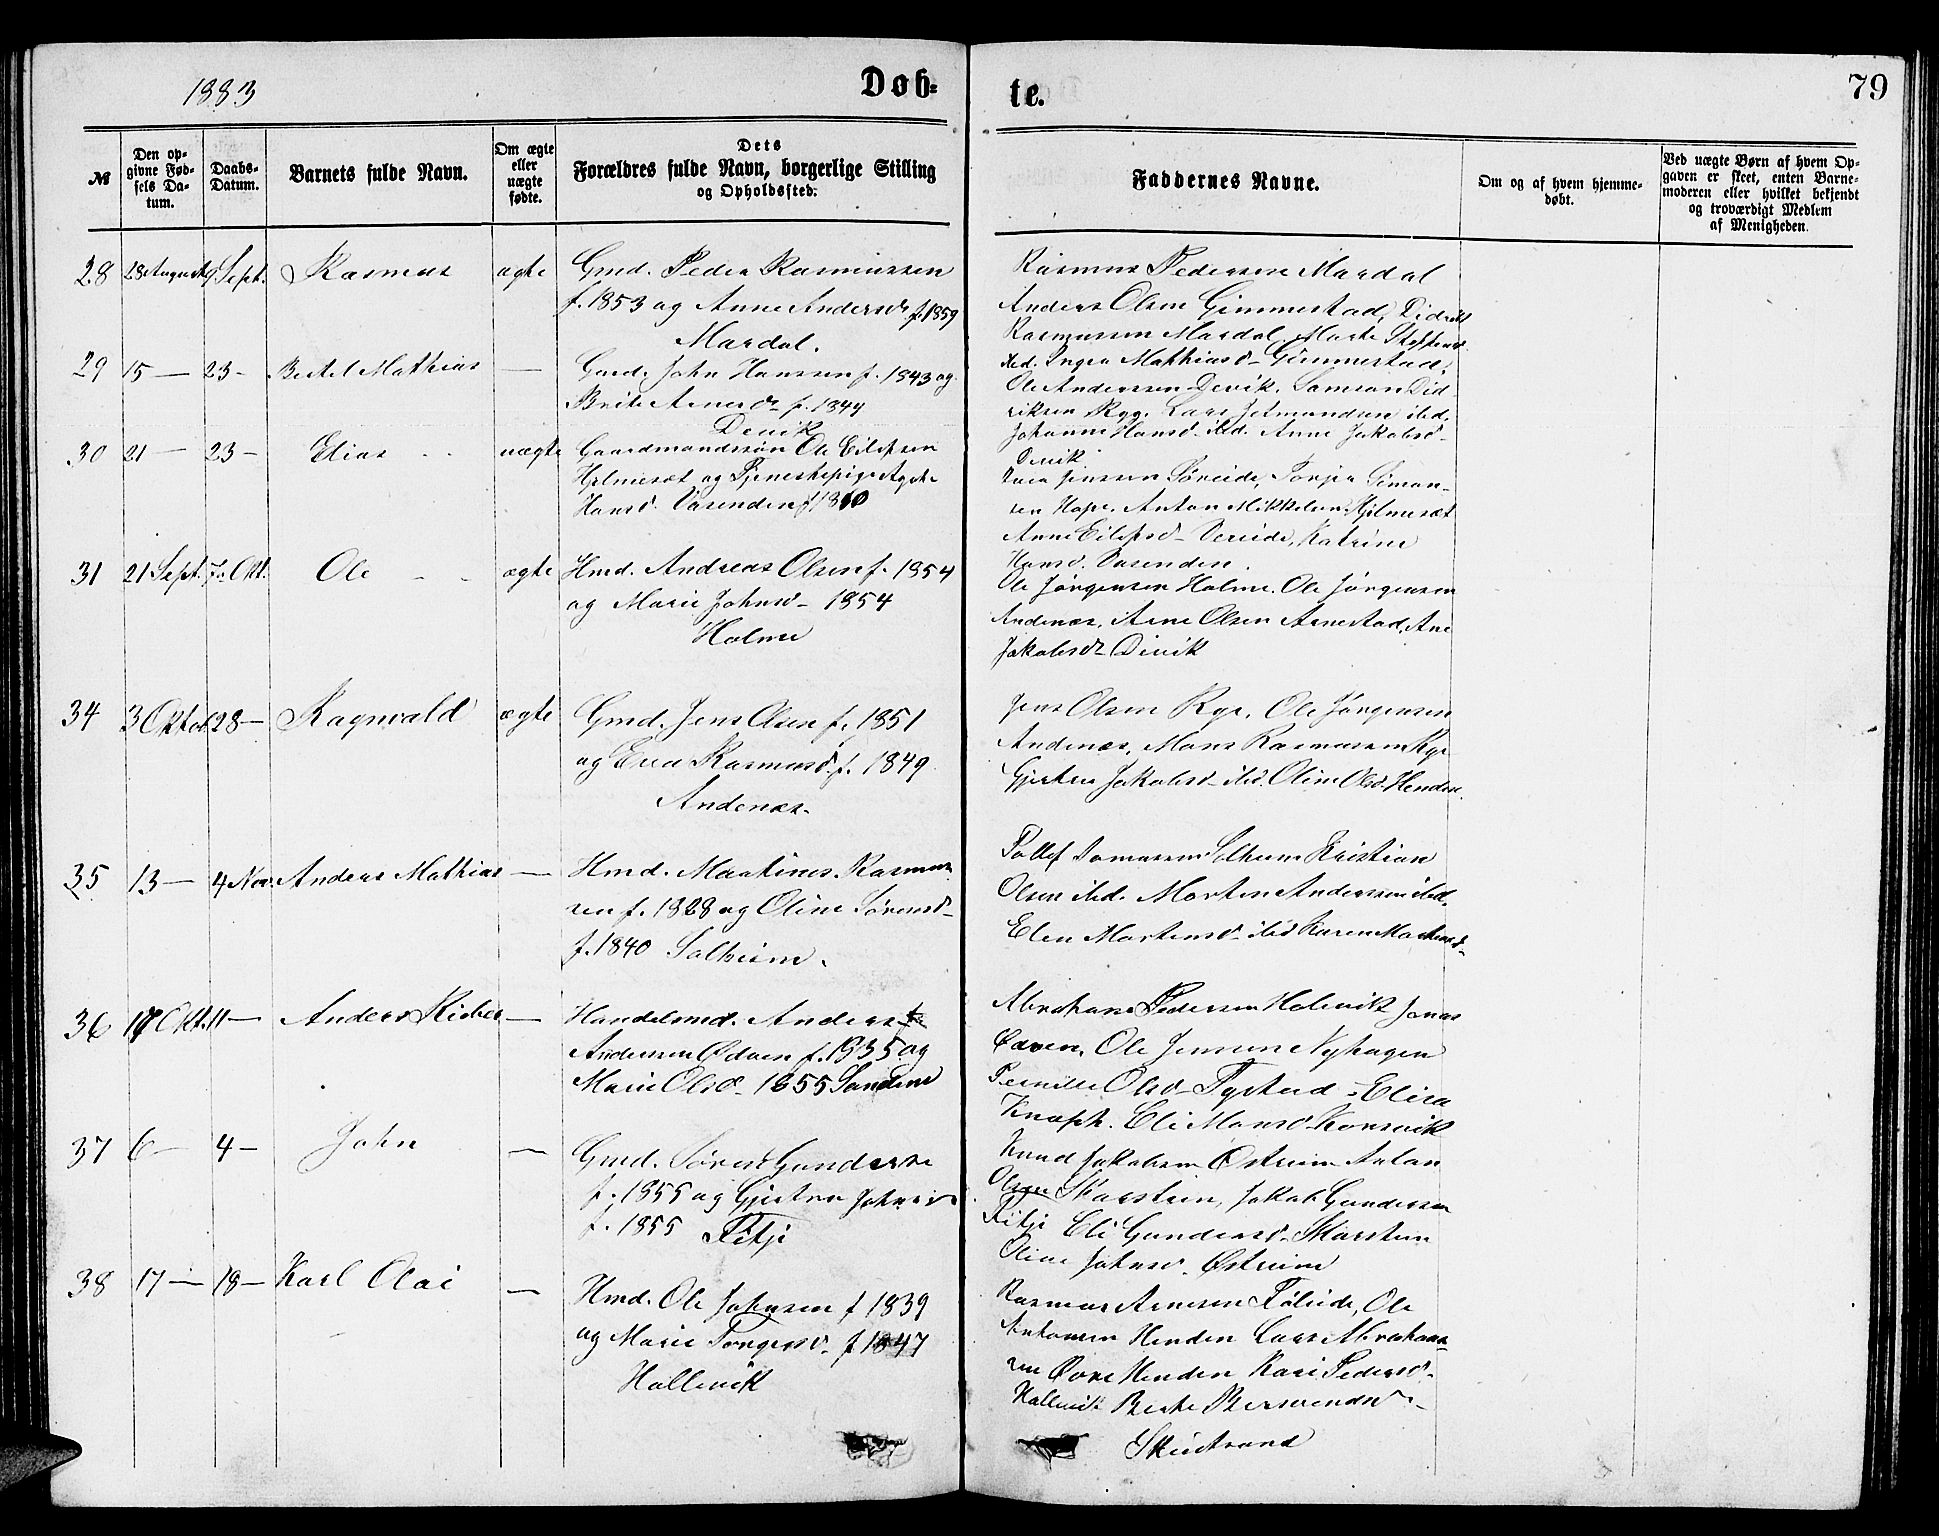 1883
Døb-
te.
79
№
Den op-
givne Fød-
sels Da-
tum.
Daabs-
Datum.
Barnets fulde Navn.
Om ægte
eller
uægte
fødte.
Dets
Forældres fulde Navn, borgerlige Stilling
og Opholdssted.
Faddernes Navne.
Om og af hvem hjemme-
døbt.
Ved uægte Børn af hvem Op-
gaven er skeet, enten Barne-
moderen eller hvilket bekjendt
og troværdigt Medlem
af Menigheden.
28
28 August
9 Sept.
Rasmus
ægte
Gmd. Peder Rasmussen
f. 1853 og Anne Andersd. f. 1859
Mardal.
Rasmus Pedersen Mardal
Anders Olsen Gimmestad, Didrik
Rasmussen Mardal. Marte Steffensd.
ibd. Inger Mathiasd- Gimmestad.
29
15 —
23 -
Bertel Mathias
—
Gmd. John Hansen f. 1843 og
Brite Arnesd. f. 1849
Devik
Ole Anderssen Devik. Samson Did-
riksen Ryg. Lars ibd.
Johanne Hansd. ibd. Anne Jakobsd-
Devik
30
21 —
23 -
Elias
uægte
Gaardmandssøn Ole Eilefsen
Hjelmeset og Tjenestepige Agote
Hansd. Vasenden f 1860
Jenssen Søreide, Torger Simon-
sen Hope. Anton Mikkelsen Hjelmeset
Anne Eilefsd- Vereide, Katrine
Hansd. Vasenden.
31
21 Sept.
7. Okt.
Ole
ægte
Hmd. Andreas Olsen f. 1854
og Marie Johnsd- 1854
Holme
Ole Jørgensen Holme. Ole Jørgensen
Andenæs, Arne Olsen Arnestad, Ane
Jakobsd- Devik
34
3 Oktob.
28 —
Ragnvald
ægte
Gmd. Jens Olsen f. 1851
og Eva Rasmusd. f. 1849
Andenæs.
Jens Olsen Ryg. Ole Jørgensen
Andenæs, Mons Rasmussen Ryg
Gjertru Jakobsd- ibd. Oline Olsd. Henden.
35
13 —
4 Nov.
Anders Mathias
—
Hmd. Martines Rasmus
sen f. 1828 og Oline Sørensd-
f. 1840 Solheim.
Tollef Tomassen Solheim Kristian
Olsen ibd. Morten Anderssen ibd.
Elen Mortensd- ibd Karen Martinsd-
36
17 Okt.
11 —
Anders Kieber
—
Handelsmd. Anders
Andersen Ødven f. 1835 og
Marie Olsd. 1855 Sandene
Abraham Pedersen Holevik Jonas
Ødven, Ole Jensen Nyhagen
Pernille Olsd- Tystad Elisa
Knaph. Eli Monsd- Korsvik
37
6 —
4 —
John
—
Gmd. Søren Gunderse
f. 1855 og Gjertru Johnsd
f. 1855 Fitje
Knud Jakobsen Østreim Anton
Olsen Skarstein, Jakob Gundersen
Fitje Eli Gundersd. Skarstein
Oline Johnsd. Østreim
38
17 —
18 —
Karl Olai
—
Hmd. Ole Johnsen f 1839
og Marie Torgersd. f 1847
Hallevik
Rasmus Arnesen Føleide, Ole
Antonsen Henden Lars Abraham-
sen Øvre Henden Kari Pedersd-
Hallevik Berte Bersvendsd-
Skeistrand